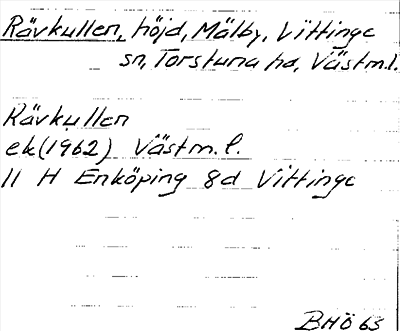 Rävkullen, höjd, Mälby, Vittinge
sn, Torstuna hd, Västm.l.
Rävkullen
ek(1962) Västm.l.
11 H Enköping 8d Vittinge
BHÖ 63